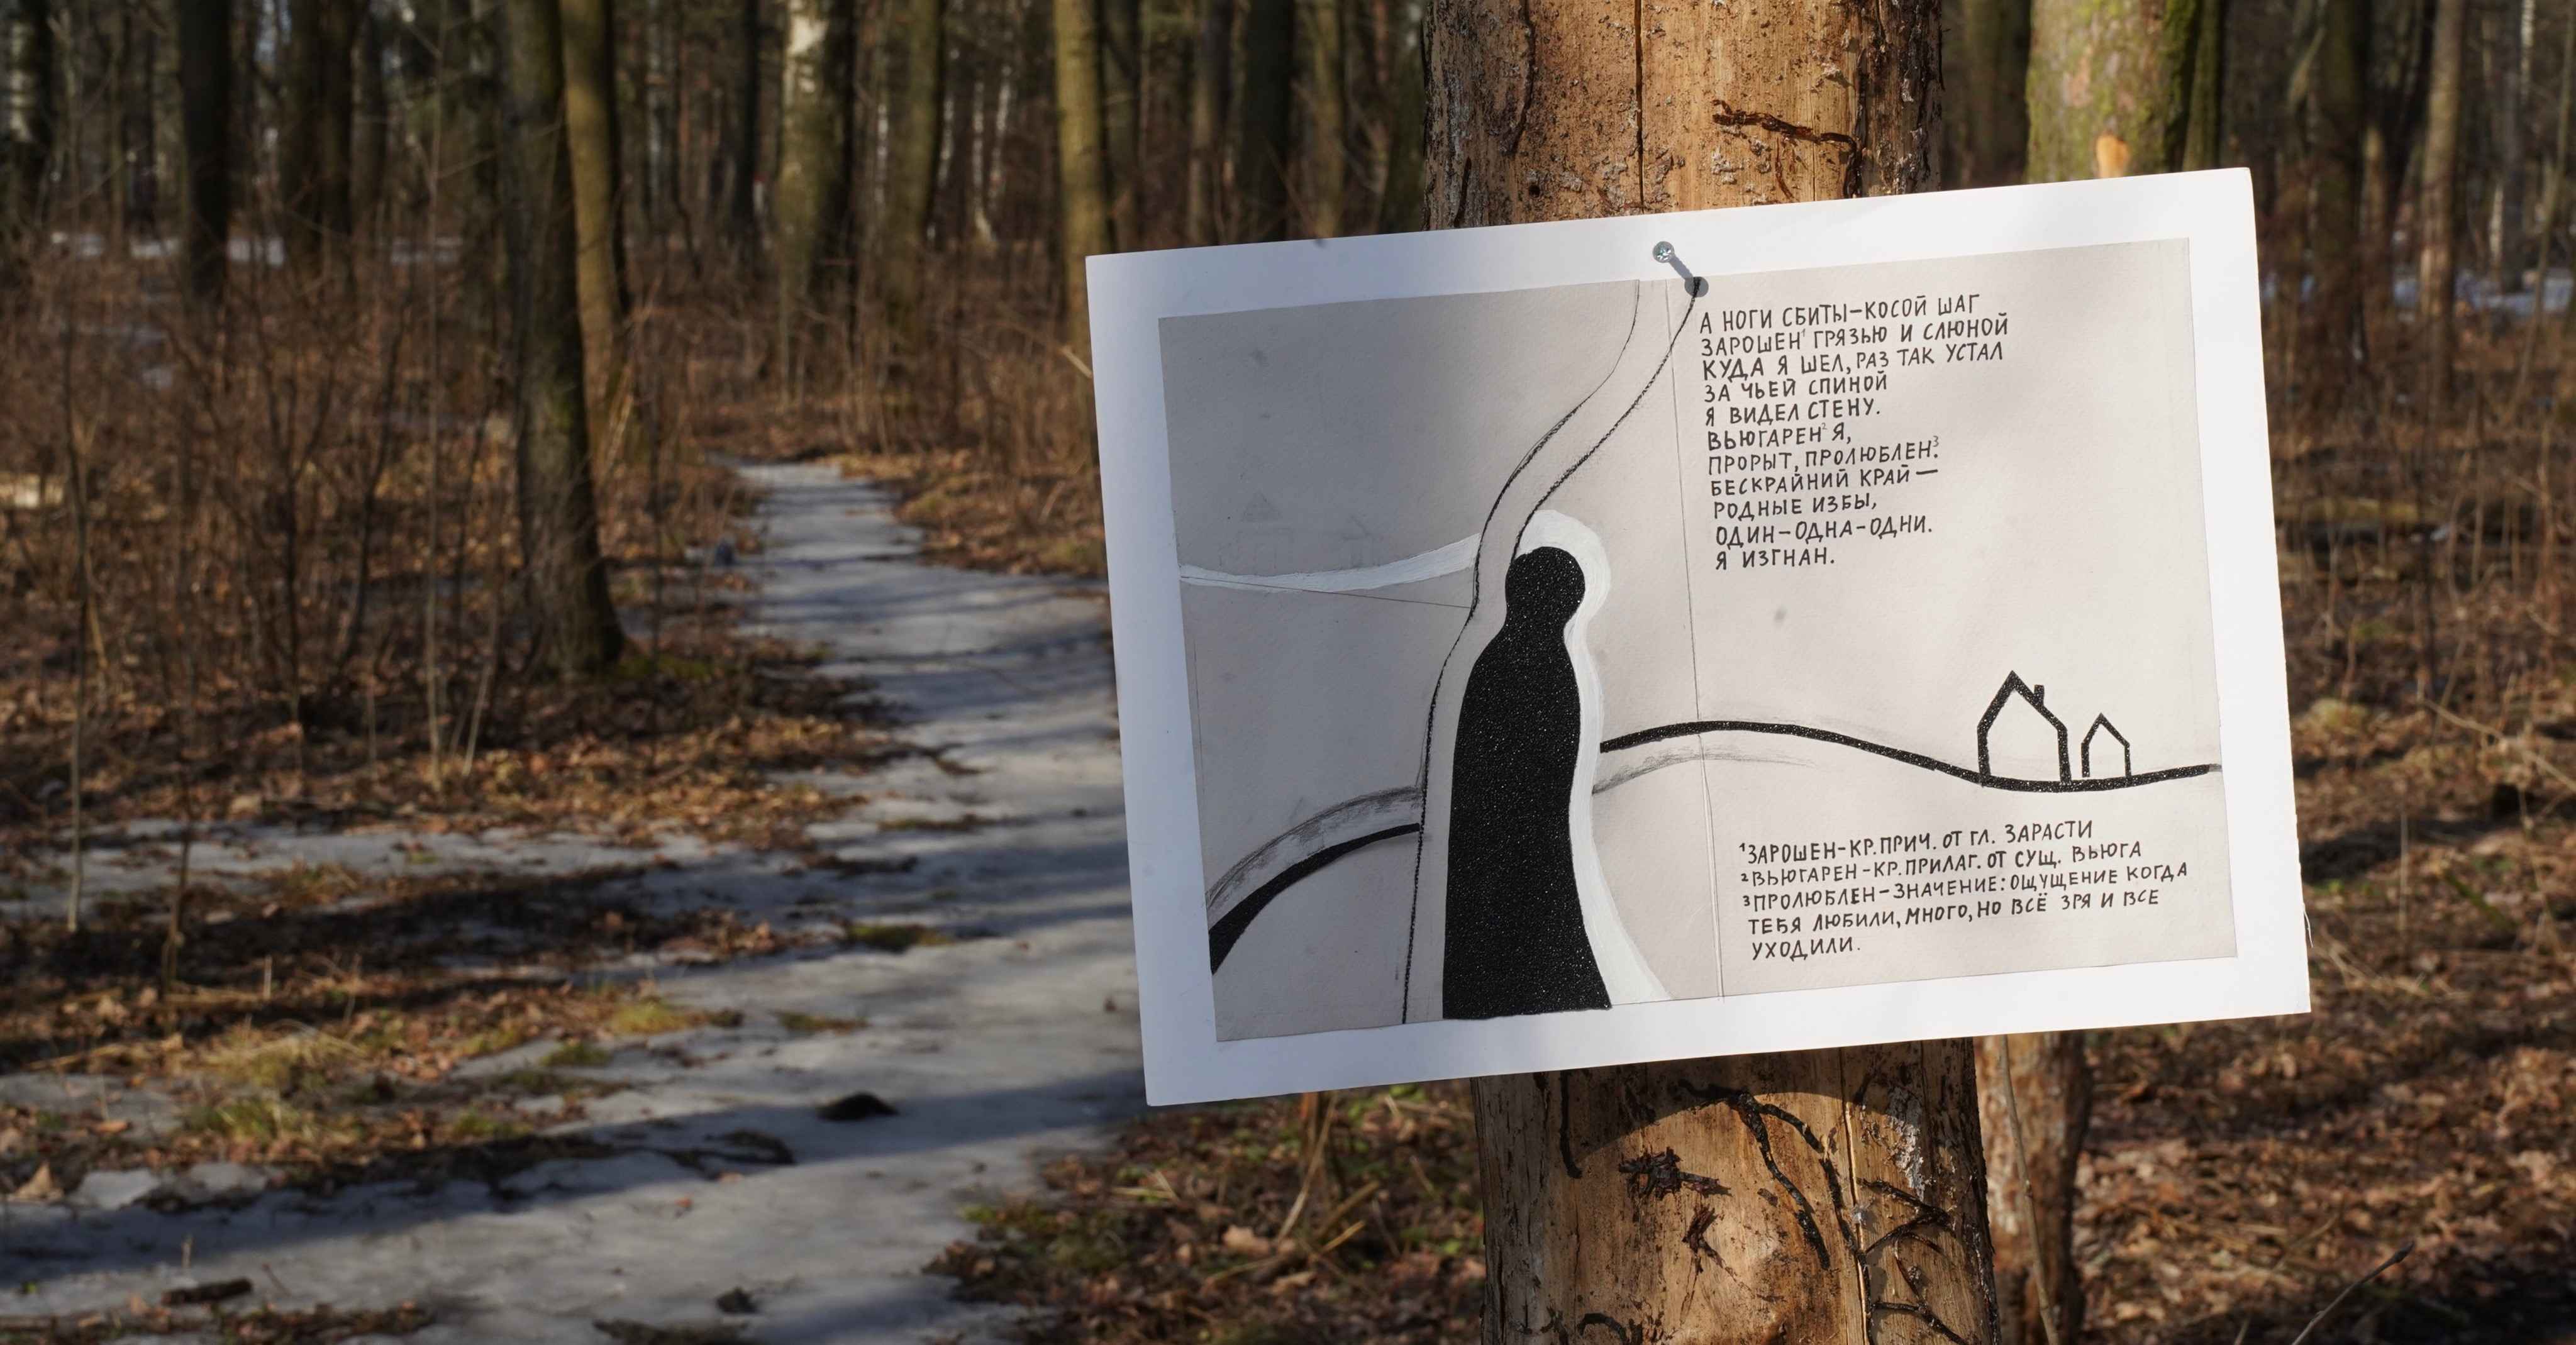 А НОГИ СБИТЫ–КОСОЙ ШАГ
ЗАРОШЕН¹ ГРЯЗЬЮ И СЛЮНОЙ
КУДА Я ШЕЛ, РАЗ ТАК УСТАЛ
ЗА ЧЬЕЙ СПИНОЙ
Я ВИДЕЛ СТЕНУ.
ВЬЮГАРЕН² Я,
ПРОРЫТ, ПРОЛЮБЛЕН³.
БЕСКРАЙНИЙ КРАЙ —
РОДНЫЕ ИЗБЫ,
ОДИН–ОДНА–ОДНИ.
Я ИЗГНАН.
¹ЗАРОШЕН–КР.ПРИЧ. ОТ ГЛ. ЗАРАСТИ
²ВЬЮГАРЕН–КР.ПРИЛАГ. ОТ СУЩ. ВЬЮГА
³ПРОЛЮБЛЕН–ЗНАЧЕНИЕ: ОЩУЩЕНИЕ КОГДА
ТЕБЯ ЛЮБИЛИ, МНОГО, НО ВСЁ ЗРЯ И ВСЕ
УХОДИЛИ.